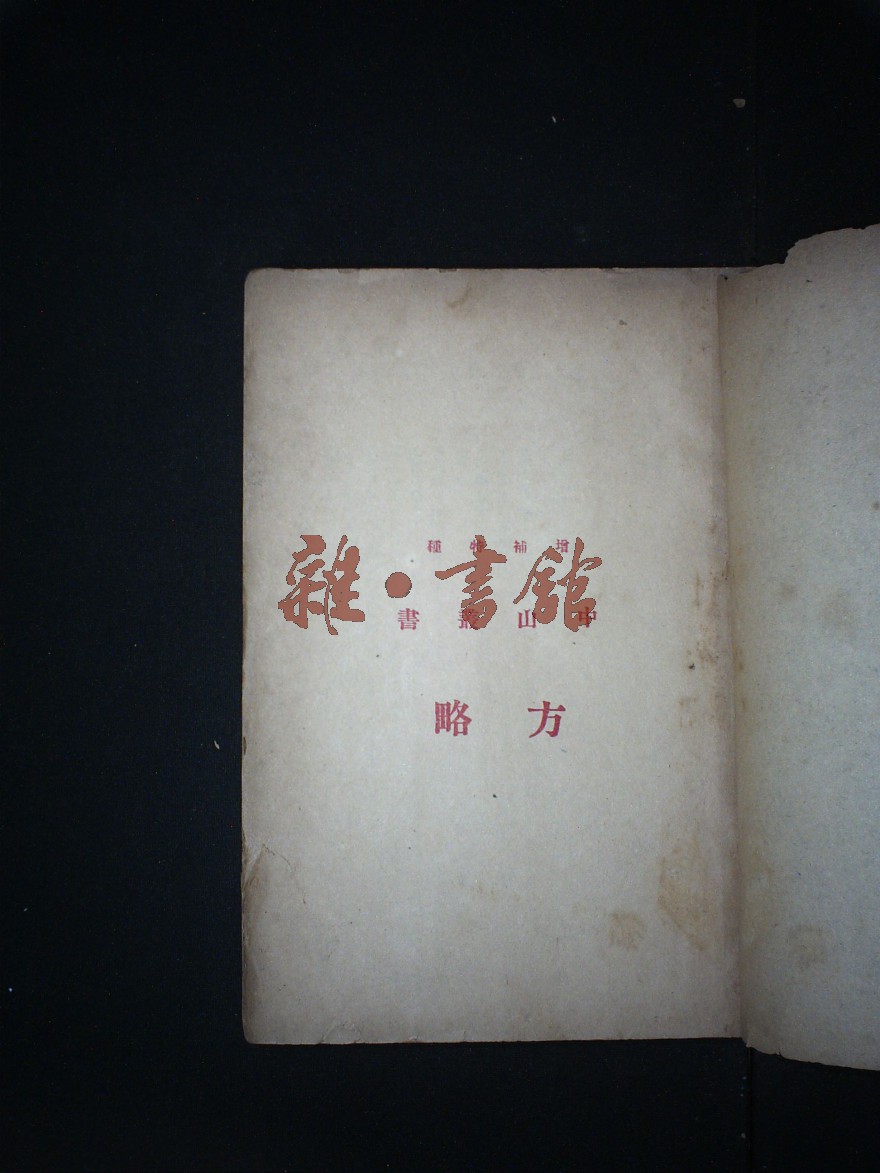 增補 種
雜·書館
中山叢書
方略